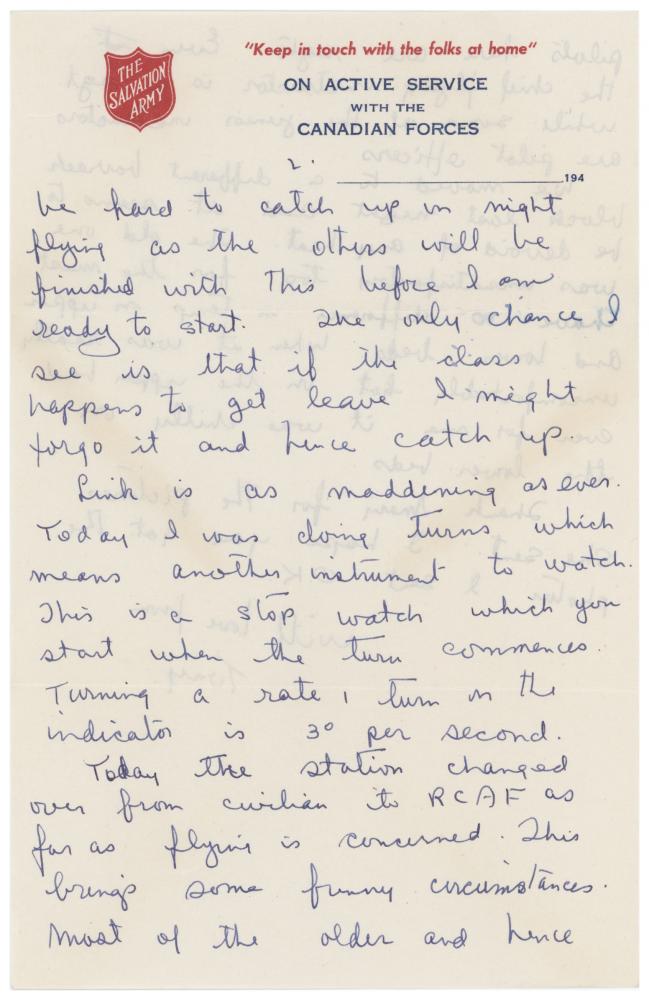 THE
SALVATION
ARMY
"Keep in touch with the folks at home"
ON ACTIVE SERVICE
WITH THE
CANADIAN FORCES
2.
194
be hard to catch up in night
flying as the others will be
finished with this before I am
ready to start. The only chance I
see is that if the class
happens to get leave I might
forgo it and hence catch up.
Link is as maddening as ever.
Today I was doing turns which
means another instrument to watch.
This is a stop watch which you
start when the turn commences.
Turning a rate 1 turn on the
indicator is 3° per second.
Today the station changed
over from civilian to RCAF as
far as flying is concerned. This
brings some funny circumstances.
Most of the older and hence